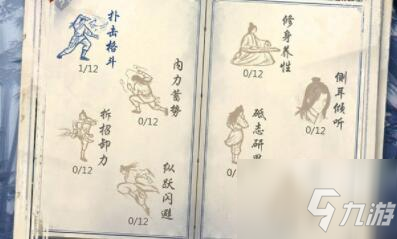 扑击格斗
1/12
内力蓄势
0/12
拆招卸力
0/12
纵跃闪避
0/12
修身养性
0/12
侧耳倾听
0/12
砥志研
0/
九游